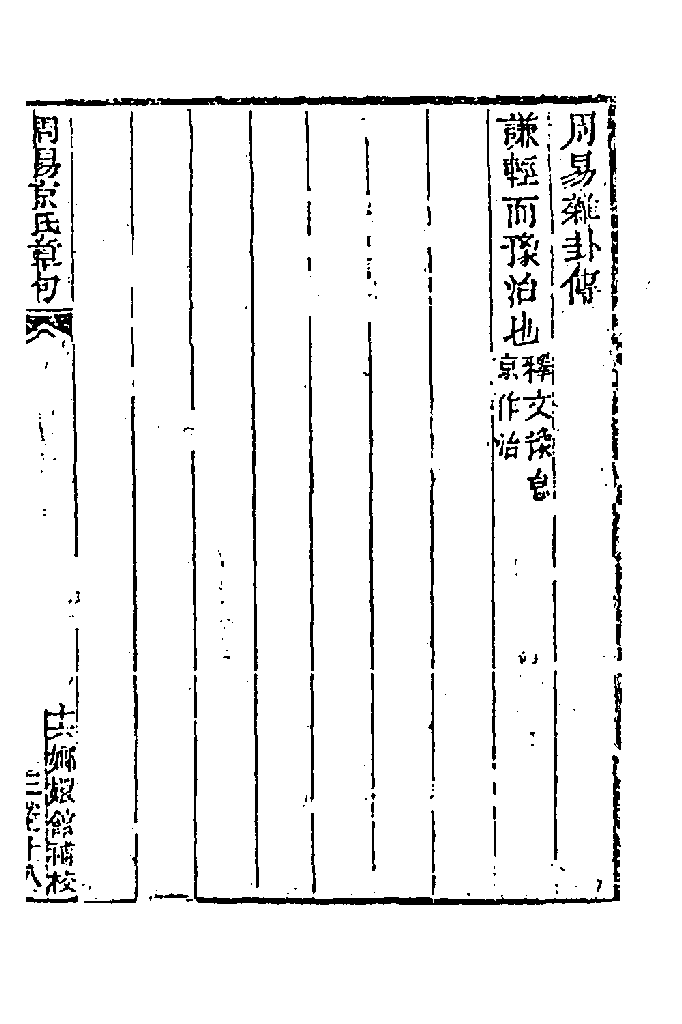 周易雜卦傳
謙輕而豫治也釋文豫怠
京作治
周易京氏章句
嫏嬛館補校